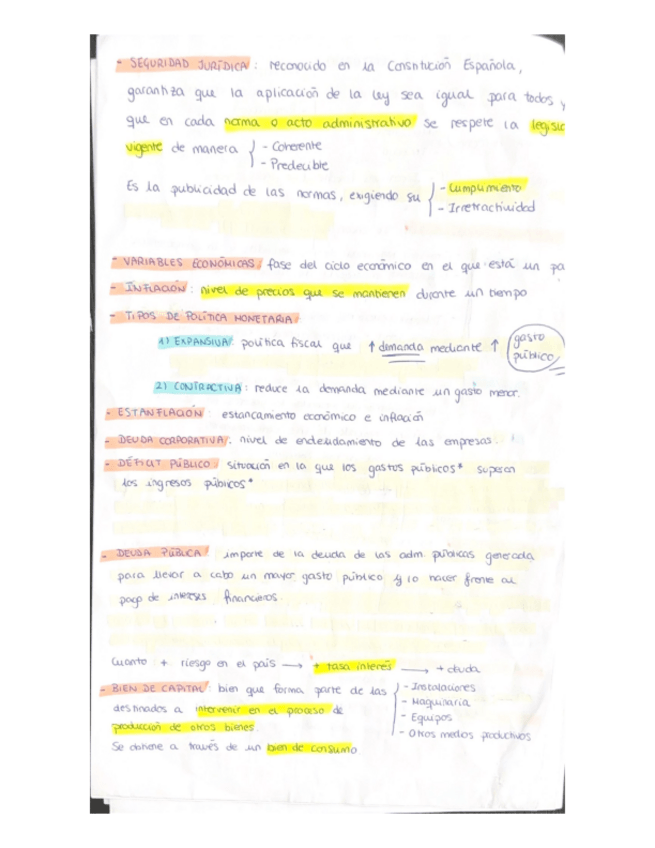 - SEGURIDAD JURÍDICA: reconocido en la Constitución Española,
garantiza que la aplicación de la ley sea igual para todos y
que en cada norma o acto administrativo se respete la legisl
vigente de manera { - Coherente
- Predecible
Es la publicidad de las normas, exigiendo su { - Cumplimiento
- Irretractividad
- VARIABLES ECONÓMICAS: fase del ciclo económico en el que está un pa
- INFLACIÓN: nivel de precios que se mantienen durante un tiempo
- TIPOS DE POLÍTICA MONETARIA:
1) EXPANSIVA: política fiscal que ↑ demanda mediante ↑ gasto
público
2) CONTRACTIVA: reduce la demanda mediante un gasto menor.
- ESTANFLACIÓN: estancamiento económico e inflación
- DEUDA CORPORATIVA: nivel de endeudamiento de las empresas.
- DÉFICIT PÚBLICO: situación en la que los gastos públicos* superan
los ingresos públicos*
- DEUDA PÚBLICA: importe de la deuda de las adm. públicas generada
para llevar a cabo un mayor gasto público y lo hacer frente al
pago de intereses financieros.
Cuanto + riesgo en el país → + tasa interés → + deuda
- BIEN DE CAPITAL: bien que forma parte de las { - Instalaciones
- Maquinaria
destinados a intervenir en el proceso de
- Equipos
producción de otros bienes.
- Otros medios productivos
Se obtiene a través de un bien de consumo